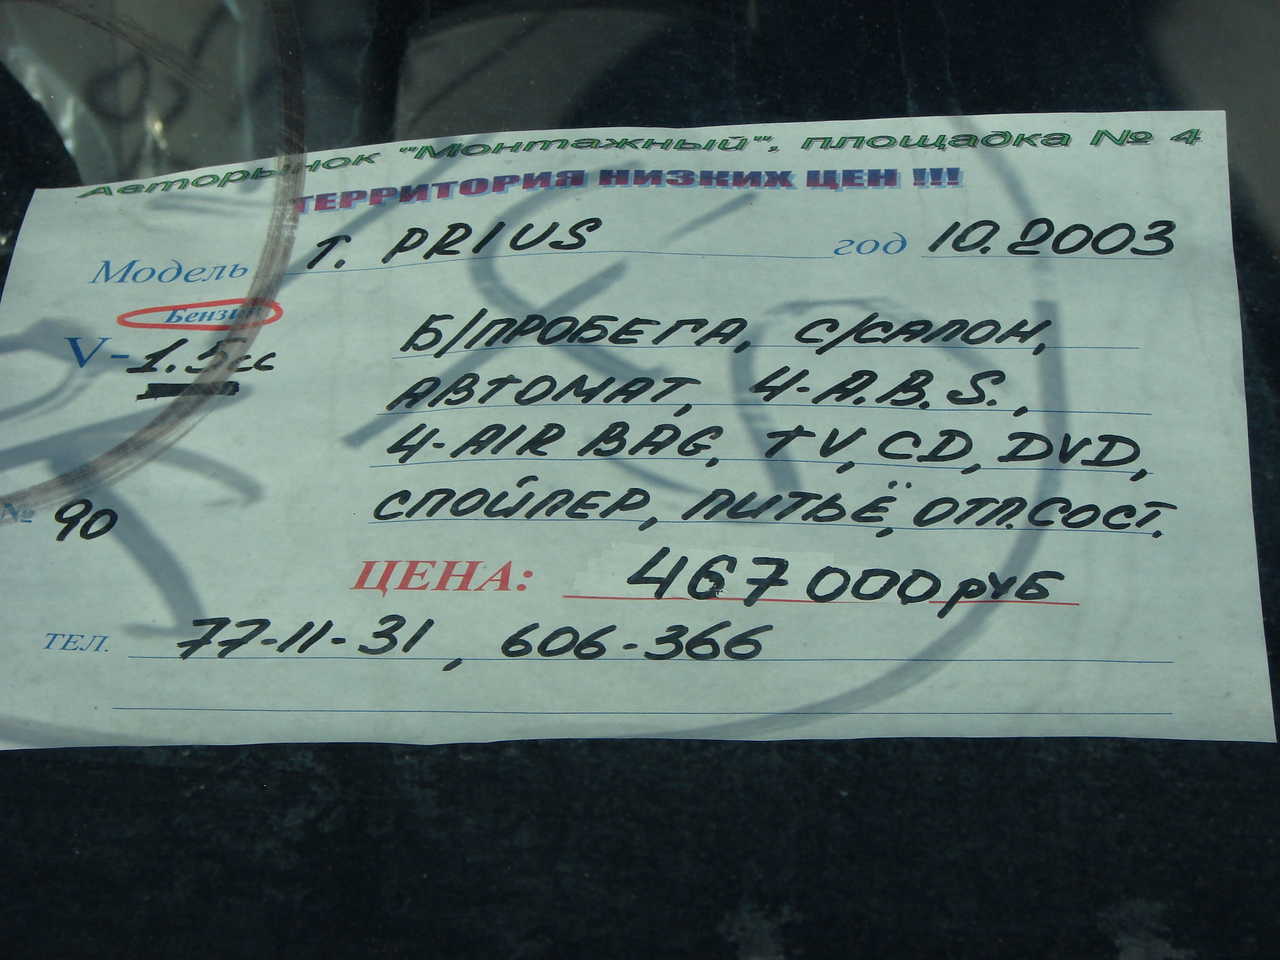 Авторынок "Монтажный", площадка № 4
ТЕРРИТОРИЯ НИЗКИХ ЦЕН !!!
Модель Т. PRIUS год 10.2003
Бензин
V- 1.5сс Б/ПРОБЕГА, С/САЛОН,
АВТОМАТ, 4-A.B.S.,
4-AIR BAG, TV, CD, DVD,
№ 90 СПОЙЛЕР, ЛИТЬЁ, ОТЛ.СОСТ.
ЦЕНА: 467000 руб
ТЕЛ. 77-11-31, 606-366